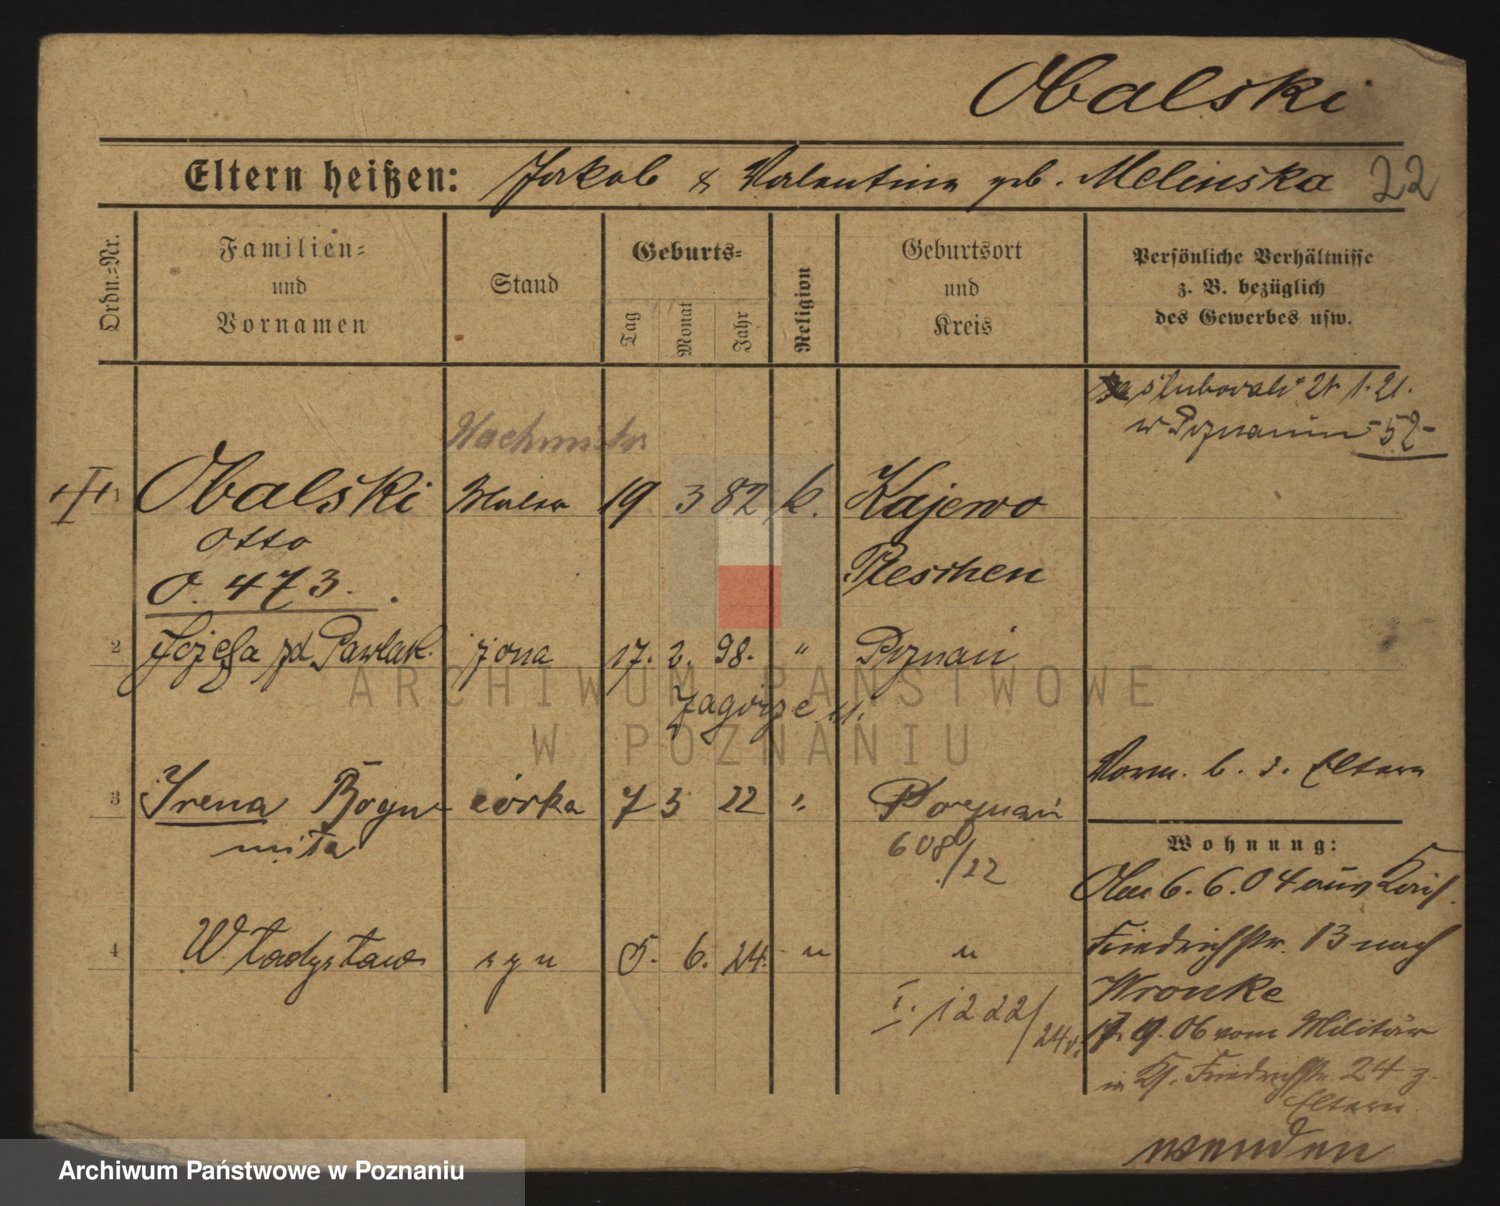 Obalski
Eltern heißen: Jakob & Valentina geb. Melinska 22
Ordn.=Nr.
Familien=
und
Vornamen
Stand
Geburts=
Tag
Monat
Jahr
Religion
Geburtsort
und
Kreis
Persönliche Verhältnisse
z. B. bezüglich
des Gewerbes usw.
zaślubowali 21. 1. 21.
w Poznaniu -52-
1 Obalski Maler 19 3 82 k. Kajewo
Otto Pleschen
O. 473.
2 Józefa zd Pawlak. żona 17. 2. 98. " Poznań
Zagórze 11.
3 Irena Bogu- córka 7 3 22 " Poznań
miła 608/22
Vorm. b. d. Eltern
Wohnung:
6. 6. 04 aus Kais.
Friedrichstr. 13 nach
Wronke
4 Władysław syn 5. 6. 24. " "
I. 1222/24
17. 9. 06 vom Militär
in Ks. Friedrichstr. 24 z.
Eltern
wenden
ARCHIWUM PAŃSTWOWE
W POZNANIU
Archiwum Państwowe w Poznaniu